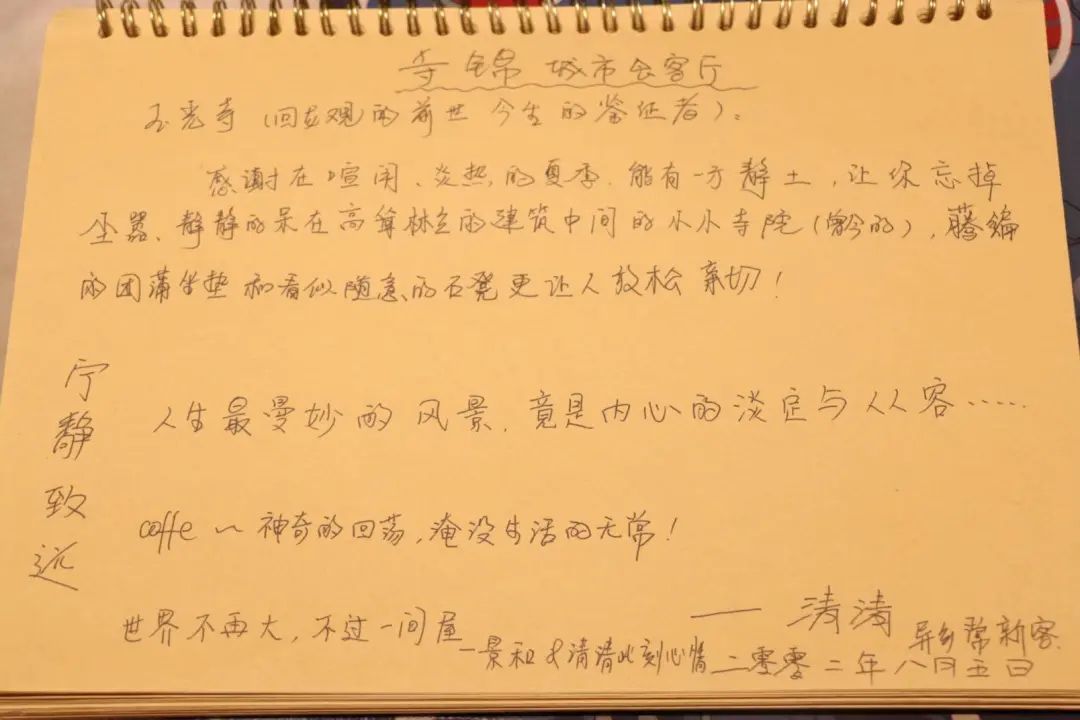 寺锦 城市会客厅
玉光寺（回龙观的前世今生的鉴证者）。
感谢在喧闹、炎热的夏季.能有一方静土，让你忘掉
尘嚣、静静的呆在高耸林立的建筑中间的小小寺院（的），藤编
的团蒲坐垫和看似随意的石凳更让人放松亲切！
宁静致远
人生最曼妙的风景，竟是内心的淡定与从容……
coffe～神奇的回荡,淹没生活的无常！
世界不再大，不过一间屋
—景和&清清此刻心情
—— 清清
异乡常新客.
二零零二年八月五日